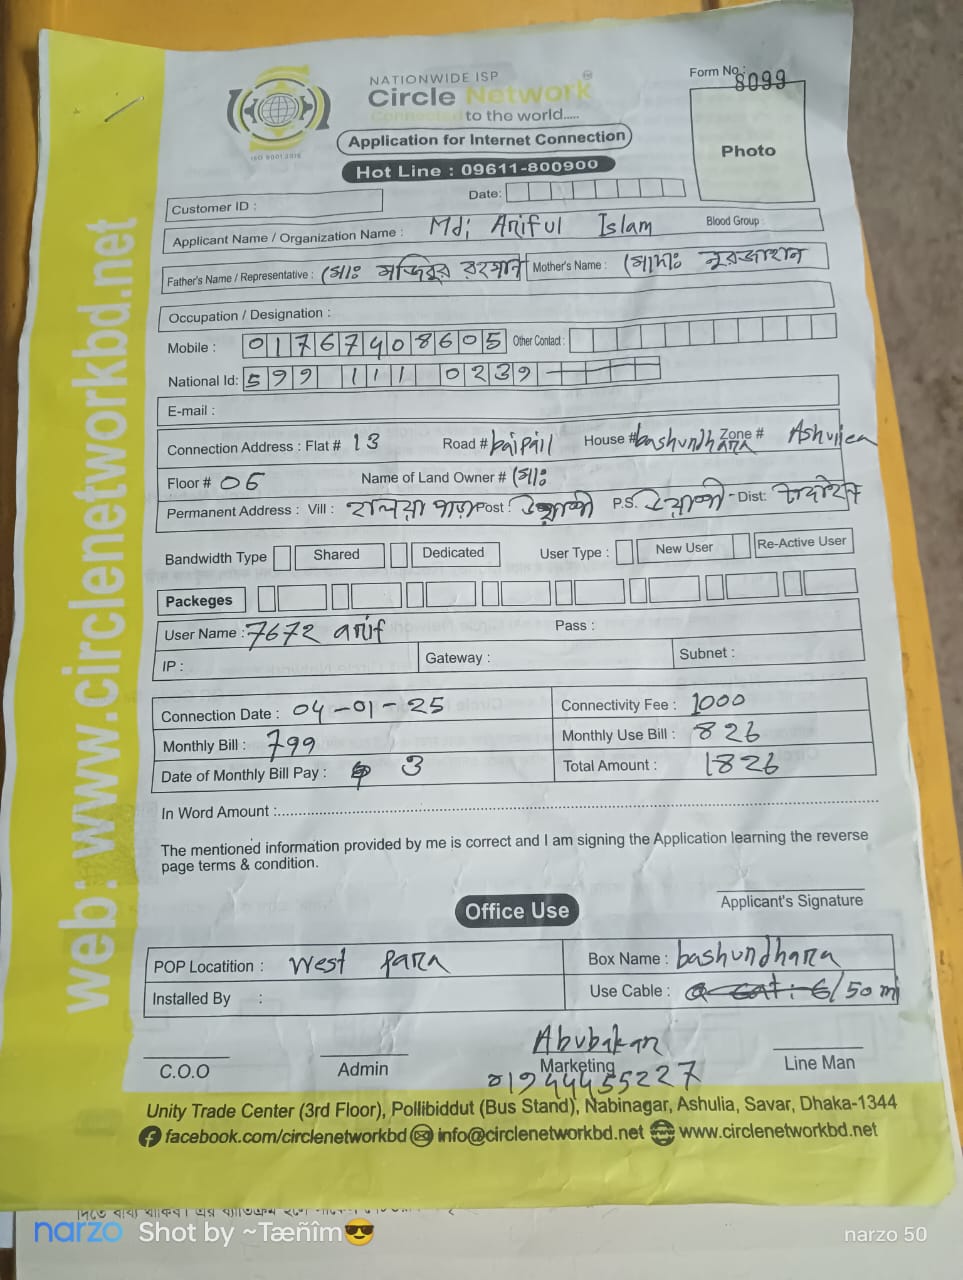 NATIONWIDE ISP
Circle Network®
Connected to the world.....
ISO 9001:2015
Form No.: 8099
Photo
Application for Internet Connection
Hot Line : 09611-800900
Customer ID :
Date:
Applicant Name / Organization Name : Md; Ariful Islam Blood Group :
Father's Name / Representative : মোঃ মজিবুর রহমান Mother's Name : মোসাঃ নুরজাহান
Occupation / Designation :
Mobile : 01767408605 Other Contact :
National Id: 599 111 0239
E-mail :
Connection Address : Flat # 13 Road # baipail House # bashundhara Zone # Ashuliea
Floor # 06 Name of Land Owner # মোঃ
Permanent Address : Vill : পাড়া Post : P.S. Dist:
Bandwidth Type Shared Dedicated User Type : New User Re-Active User
Packeges
User Name : 7672 arif Pass :
IP : Gateway : Subnet :
Connection Date : 04-01-25 Connectivity Fee : 1000
Monthly Bill : 799 Monthly Use Bill : 826
Date of Monthly Bill Pay : 3 Total Amount : 1826
In Word Amount :
The mentioned information provided by me is correct and I am signing the Application learning the reverse
page terms & condition.
Applicant's Signature
Office Use
POP Locatition : West para Box Name : bashundhara
Installed By : Use Cable : /50 m
Abubakar
C.O.O Admin Marketing Line Man
01944455227
Unity Trade Center (3rd Floor), Pollibiddut (Bus Stand), Nabinagar, Ashulia, Savar, Dhaka-1344
facebook.com/circlenetworkbd info@circlenetworkbd.net www.circlenetworkbd.net
web: www.circlenetworkbd.net
narzo Shot by ~Tæñîm😎 narzo 50